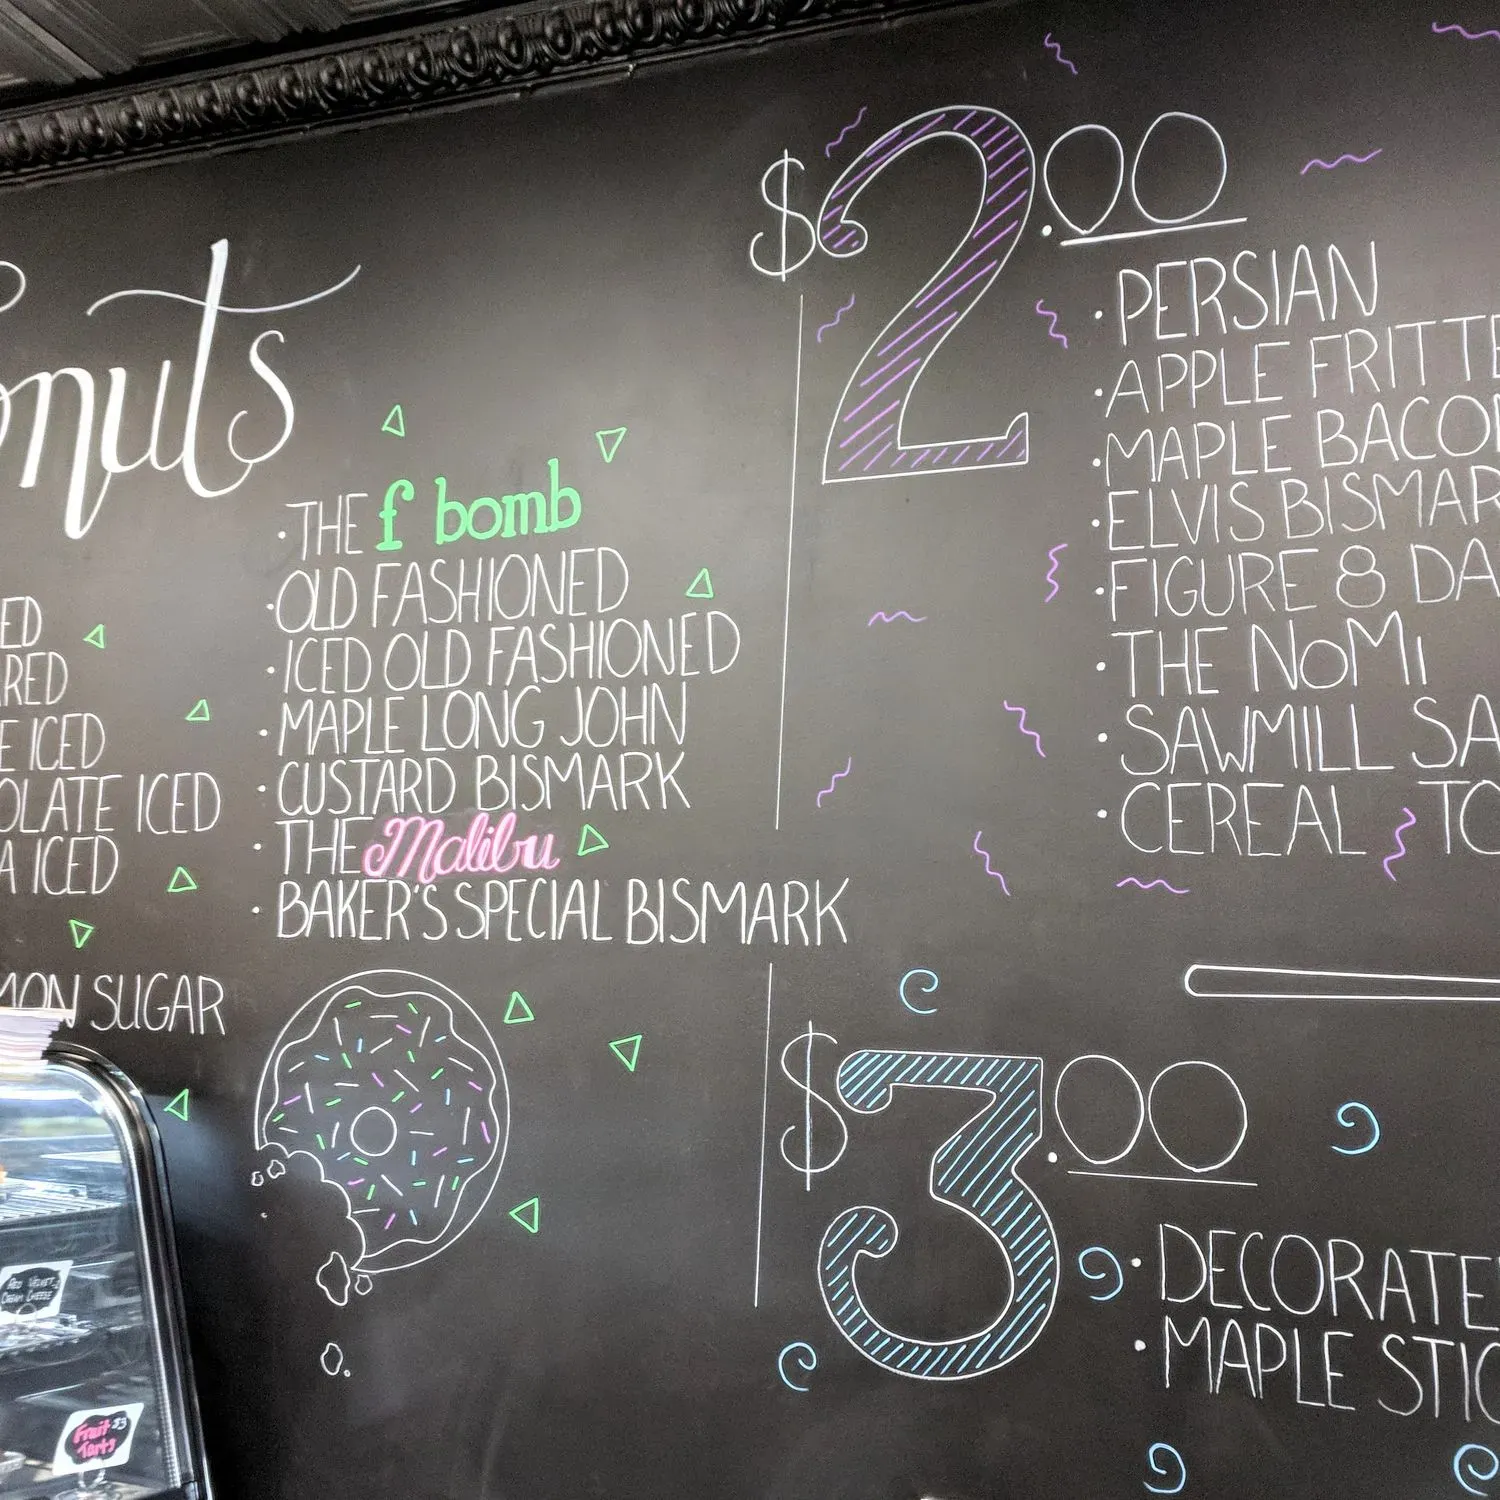 onuts
ED
RED
E ICED
OLATE ICED
A ICED
MON SUGAR
·THE f bomb
·OLD FASHIONED
·ICED OLD FASHIONED
·MAPLE LONG JOHN
·CUSTARD BISMARK
·THE Malibu
·BAKER'S SPECIAL BISMARK
$2.00
·PERSIAN
·APPLE FRITTE
·MAPLE BACO
·ELVIS BISMAR
·FIGURE 8 DA
·THE NOMI
·SAWMILL SA
·CEREAL TO
$3.00
·DECORATE
·MAPLE STIC
RED VELVET
CREAM CHEESE
Fruit $3
Tarts